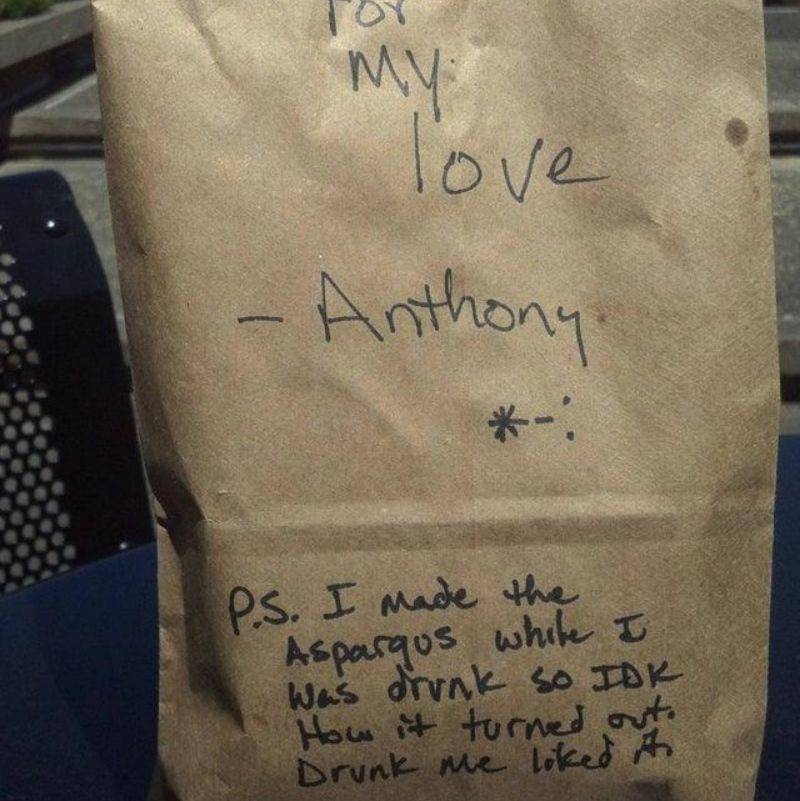 For
My
love
- Anthony
*-:
P.S. I made the
Aspargus while I
was drunk so IDK
How it turned out.
Drunk me liked it